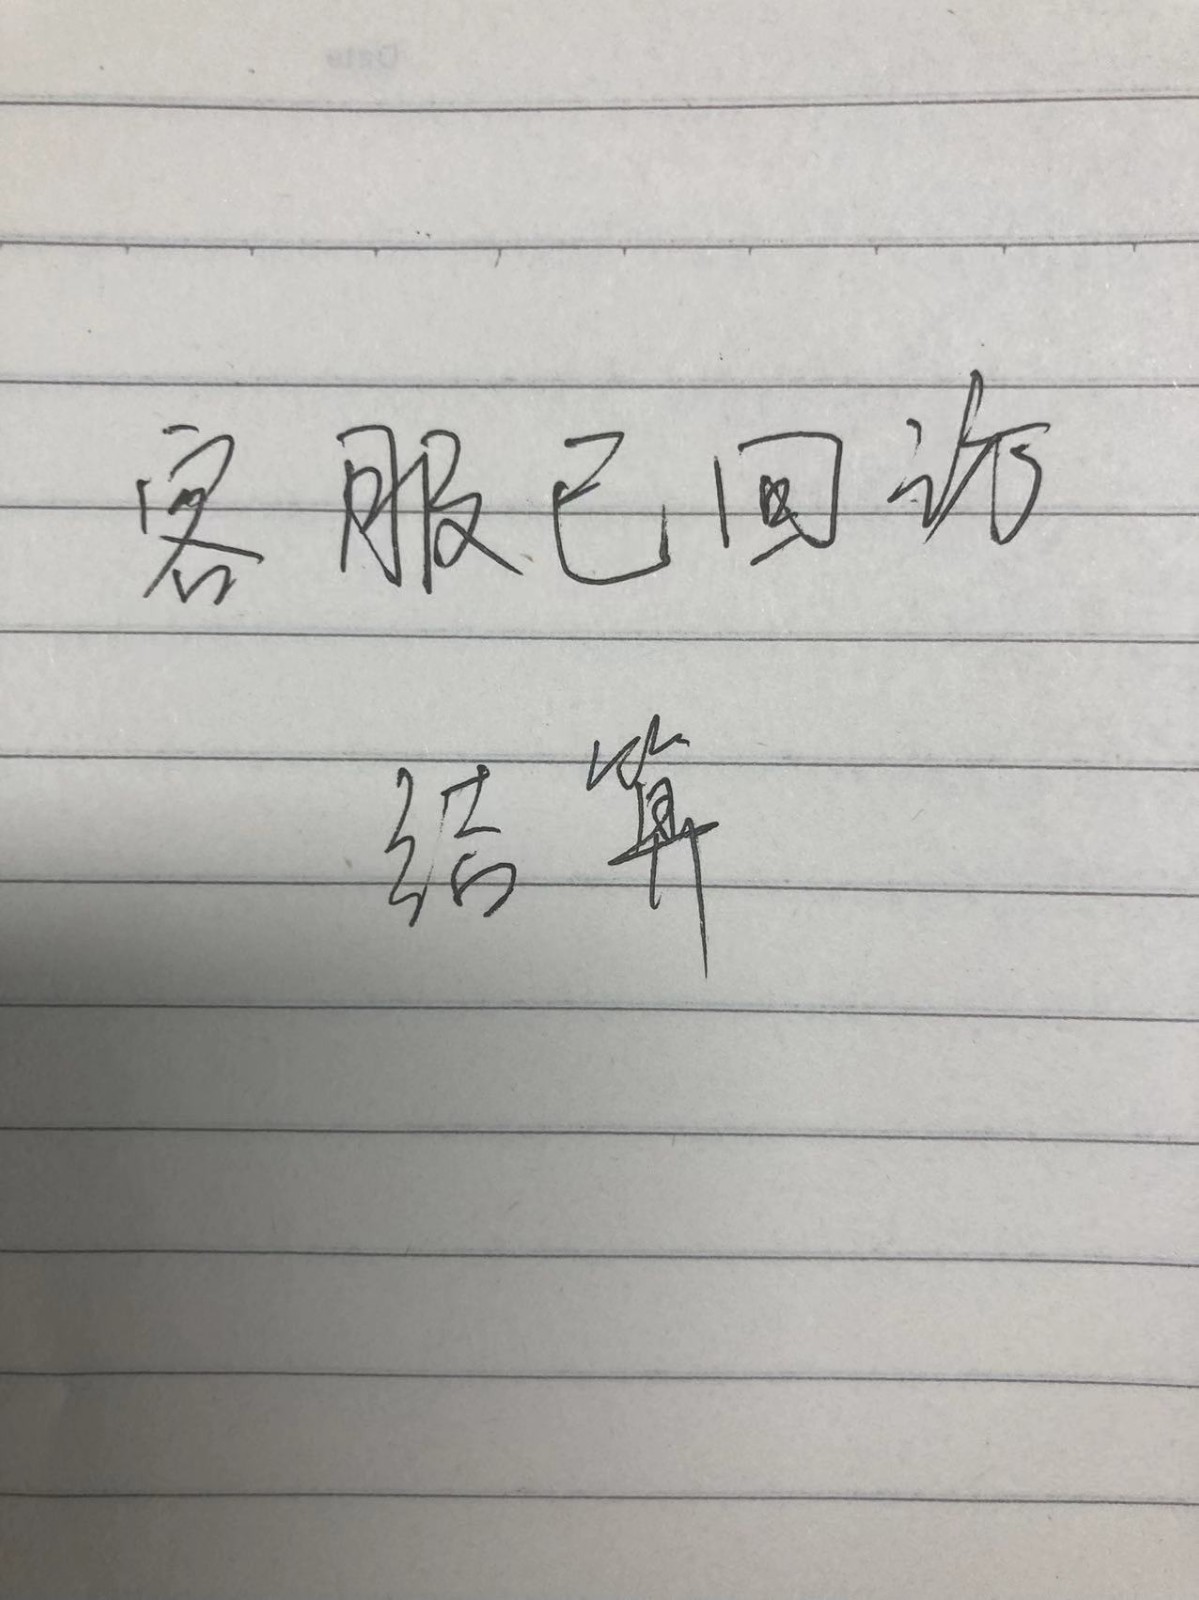 Date
客服已回访
结算